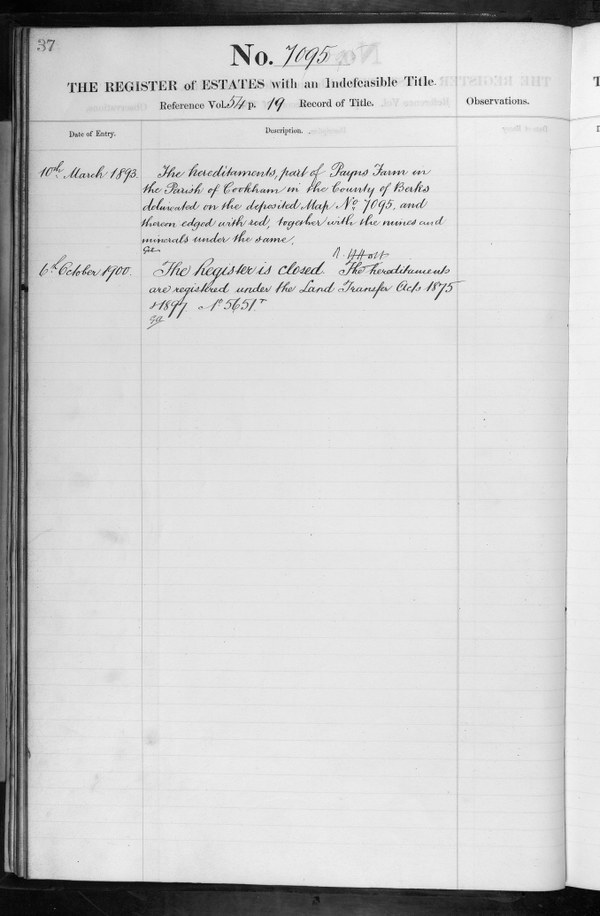 37
No. 7095
THE REGISTER of ESTATES with an Indefeasible Title.
Reference Vol. 54 p. 19 Record of Title.
Observations.
Date of Entry.
Description.
10th March 1893.
The hereditaments, part of Payns Farm in
the Parish of Cookham in the County of Berks
delineated on the deposited Map No. 7095, and
thereon edged with red, together with the mines and
minerals under the same.
6th October 1900.
The Register is closed. The hereditaments
are registered under the Land Transfer Acts 1875
& 1897 No 5651.